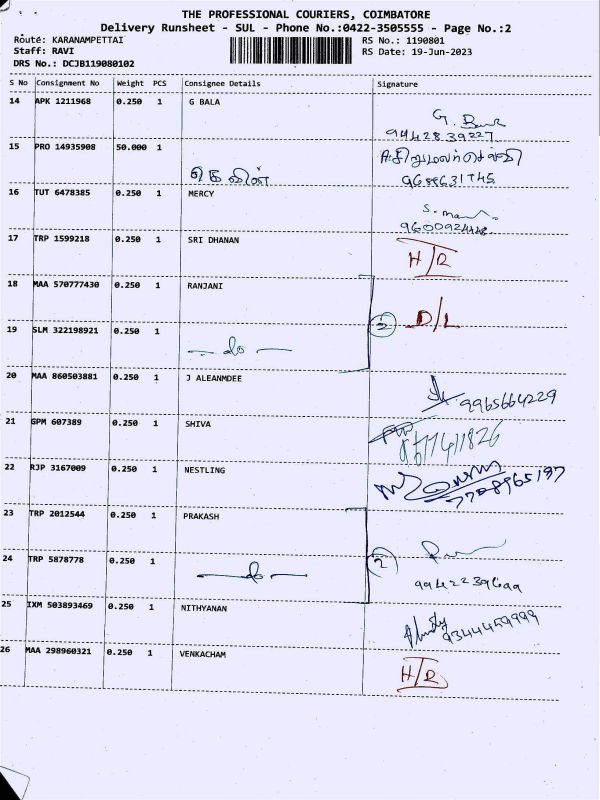 THE PROFESSIONAL COURIERS, COIMBATORE
Delivery Runsheet - SUL - Phone No.:0422-3505555 - Page No.:2
Route: KARANAMPETTAI RS No.: 1190801
Staff: RAVI RS Date: 19-Jun-2023
DRS No.: DCJB119080102
S No Consignment No Weight PCS Consignee Details Signature
14 APK 1211968 0.250 1 G BALA
9442839227
15 PRO 14935908 50.000 1
கெவின் 9688631745
16 TUT 6478385 0.250 1 MERCY
17 TRP 1599218 0.250 1 SRI DHANAN H/R
18 MAA 570777430 0.250 1 RANJANI
2 D/L
19 SLM 322198921 0.250 1
— do —
20 MAA 860503881 0.250 1 J ALEANMDEE
9965664229
21 GPM 607389 0.250 1 SHIVA
22 RJP 3167009 0.250 1 NESTLING
7708965197
23 TRP 2012544 0.250 1 PRAKASH
2
24 TRP 5878778 0.250 1
— do —
25 IXM 503893469 0.250 1 NITHYANAN
9344459999
26 MAA 298960321 0.250 1 VENKACHAM H/R